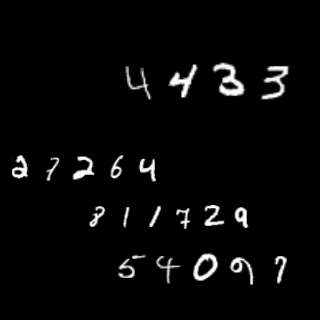 4433
27264
811729
54097